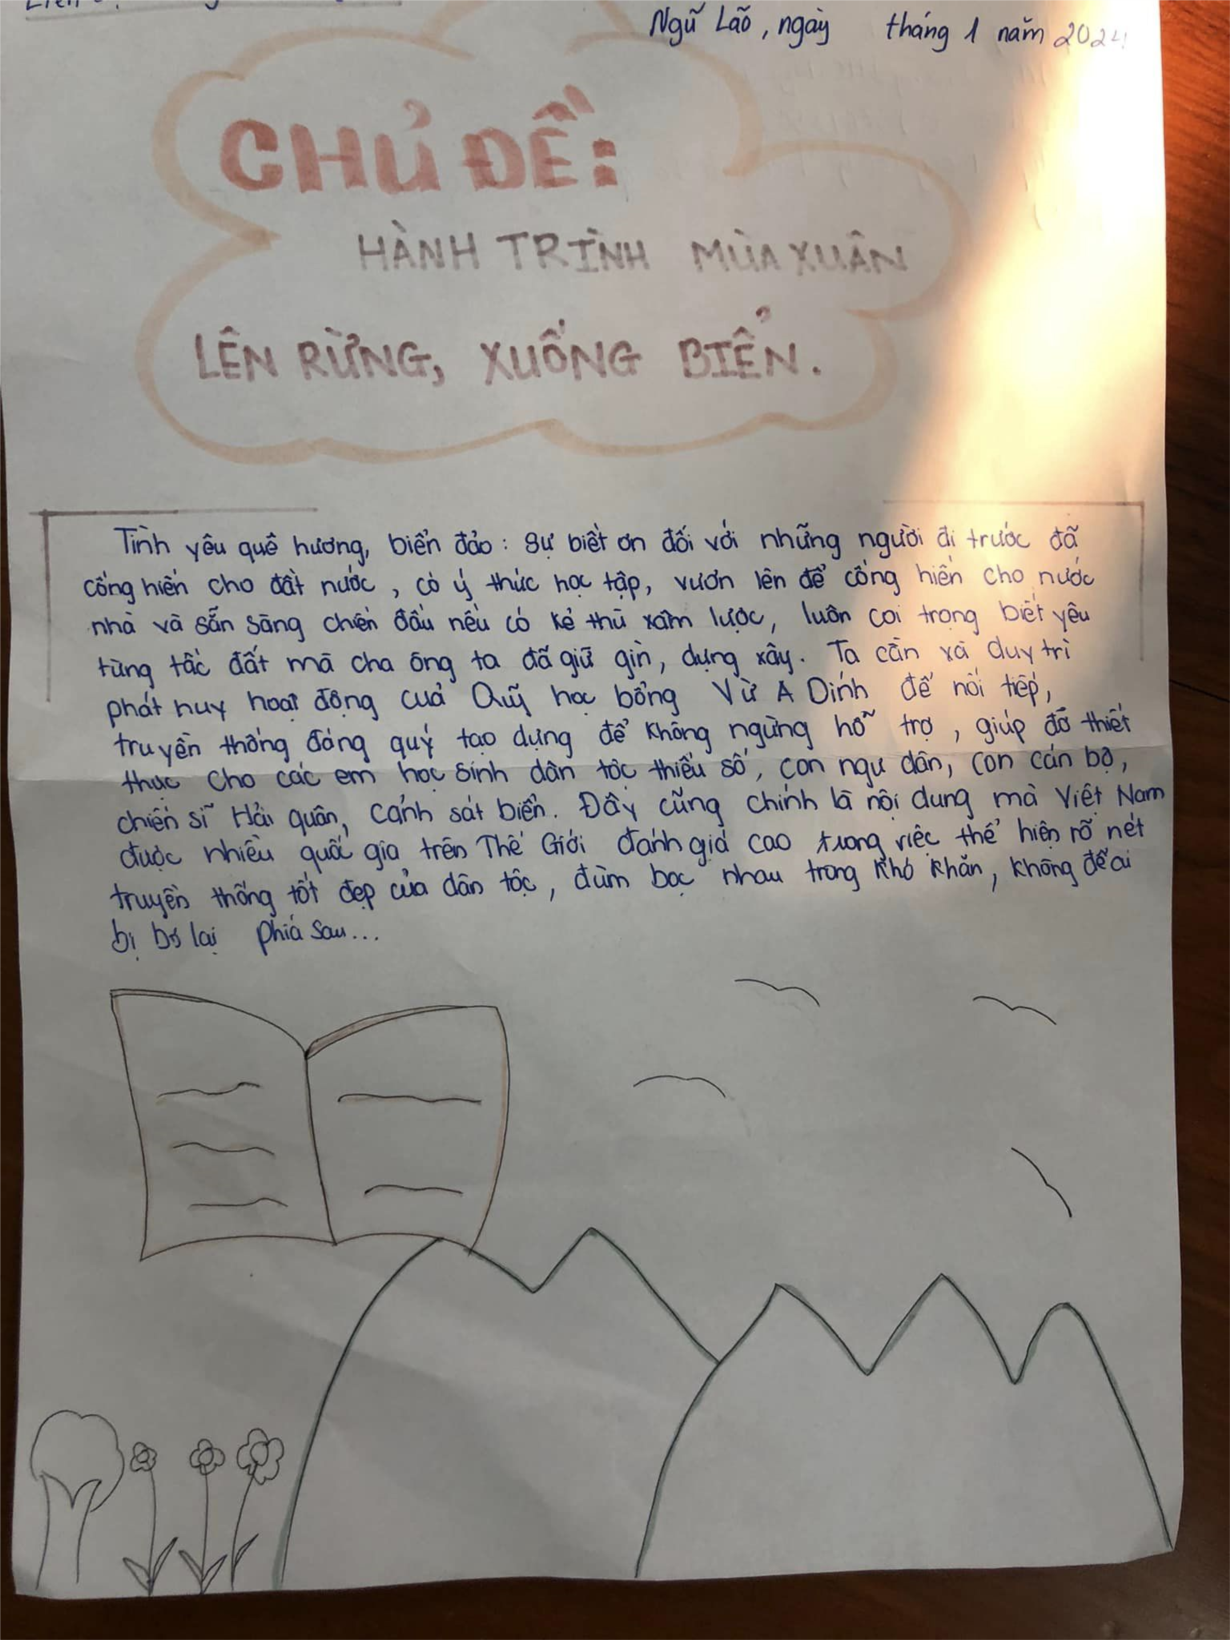 Ngũ Lão, ngày tháng 1 năm 2024
CHỦ ĐỀ:
HÀNH TRÌNH MÙA XUÂN
LÊN RỪNG, XUỐNG BIỂN.
Tình yêu quê hương, biển đảo: sự biết ơn đối với những người đi trước đã
cống hiến cho đất nước, có ý thức học tập, vươn lên để cống hiến cho nước
nhà và sẵn sàng chiến đấu nếu có kẻ thù xâm lược, luôn coi trọng biết yêu
từng tấc đất mà cha ông ta đã giữ gìn, dựng xây. Ta cần và duy trì
phát huy hoạt động của Quỹ học bổng Vừ A Dính để nối tiếp,
truyền thống đáng quý tạo dựng để không ngừng hỗ trợ, giúp đỡ thiết
thực cho các em học sinh dân tộc thiểu số, con ngư dân, con cán bộ,
chiến sĩ Hải quân, cảnh sát biển. Đây cũng chính là nội dung mà Việt Nam
được nhiều quốc gia trên Thế Giới đánh giá cao trong việc thể hiện rõ nét
truyền thống tốt đẹp của dân tộc, đùm bọc nhau trong khó khăn, không để ai
bị bỏ lại phía sau...